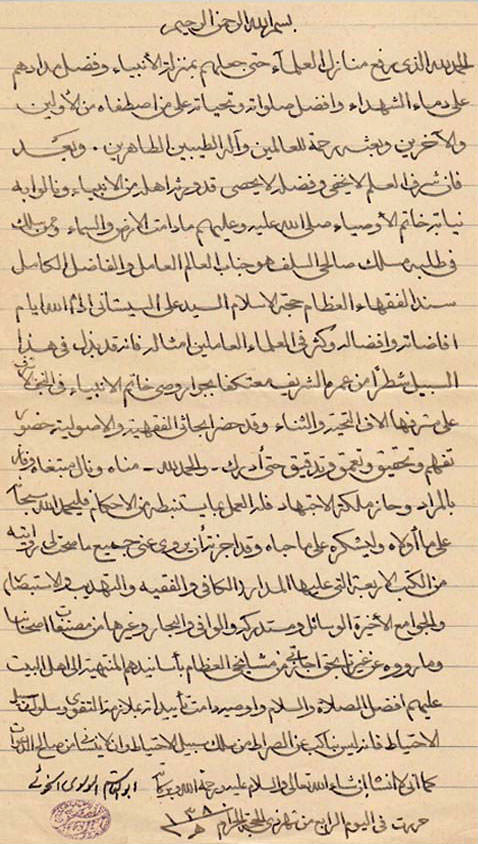 بسم الله الرحمن الرحيم
الحمد لله الذي رفع منازل العلماء حتى جعلهم بمنزلة الأنبياء وفضل مدادهم
على دماء الشهداء وافضل صلواته وتحياته على من اصطفاه من الأولين
والآخرين وبعثه رحمة للعالمين وآله الطيبين الطاهرين . وبعد
فان شرف العلم لا يخفى وفضله لا يحصى قد ورثه اهله من الانبياء ونالوا به
نيابة خاتم الأوصياء صلى الله عليه وعليهم مادامت الارض والسماء وممن سلك
في طلبه مسلك صالحي السلف هو جناب العالم العامل والفاضل الكامل
سند الفقهاء العظام حجة الاسلام السيد علي السيستاني ادام الله ايام
افاضاته وافضاله وكثر في العلماء العاملين امثاله فانه قد بذل في هذا
السبيل شطرا من عمره الشريف معتكفا بجوار وصي خاتم الانبياء في النجف الاشرف
على مشرفها آلاف التحية والثناء وقد حضر ابحاثي الفقهية والاصولية حضور
تفهم وتحقيق وتعمق وتدقيق حتى أدرك - والحمد لله - مناه ونال مبتغاه وفاز
بالمراد وحاز ملكة الاجتهاد فله العمل بما يستنبطه من الاحكام فليحمد الله سبحانه
على ما أولاه وليشكره على ما حباه وقد اجزته أن يروي عني جميع ما صحت لي روايته
من الكتب الاربعة التي عليها المدار (الكافي والفقيه والتهذيب والاستبصار)
والجوامع الأخيرة الوسائل ومستدركه والوافي والبحار وغيرها من مصنفات اصحابنا
وما رووه عن غيرنا بحق اجازتي من مشايخي العظام بأسانيدهم المنتهية الى اهل البيت
عليهم افضل الصلاة والسلام واوصيه دامت تأييداته بملازمة التقوى وسلوك سبيل
الاحتياط فانه ليس بناكب عن الصراط من سلك سبيل الاحتياط وان لا ينساني من صالح الدعوات
كما أني لا انساه إن شاء الله تعالى والسلام عليه ورحمة الله وبركاته ابو القاسم الموسوي الخوئي
حررت في اليوم الرابع من شهر ذي الحجة الحرام ١٣٨٠ هـ